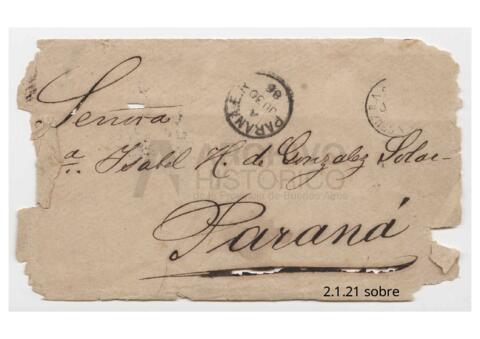 Señora
Dª. Isabel H. de Gonzalez Solar
Paraná
PARANA E.R.
A
JU 30
96
ARCHIVO
HISTÓRICO
de la Provincia de Buenos Aires
2.1.21 sobre